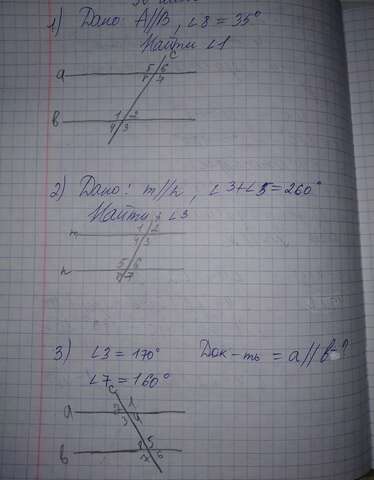 1) Дано: A//B, ∠8 = 35°
Найти ∠1
c
a 5 6
8 7
в 1 2
4 3
2) Дано: m//n, ∠3+∠5=260°
Найти ∠3
m 1 2
4 3
n 5 6
8 7
3) ∠3 = 170° Док-ть = a//в-?
∠7 = 160°
c
a 1
2 3
в 5
6
7